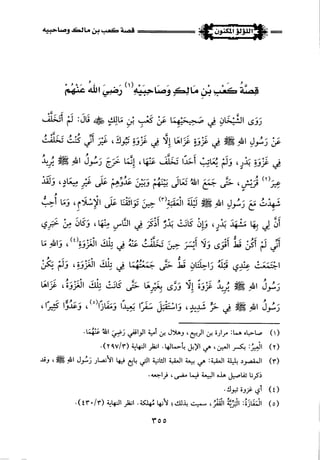 قصة كعب بن مالك وصاحبيه
اللؤلؤ المكنون
قِصَّةُ كَعْبِ بْنِ مَالِكٍ وَصَاحِبَيْهِ(١) رَضِيَ اللهُ عَنْهُمْ
رَوَى الشَّيْخَانِ فِي صَحِيحَيْهِمَا عَنْ كَعْبِ بْنِ مَالِكٍ ﷺ قَالَ: لَمْ أَتَخَلَّفْ
عَنْ رَسُولِ اللهِ ﷺ فِي غَزْوَةٍ غَزَاهَا إِلَّا فِي غَزْوَةِ تَبُوكَ، غَيْرَ أَنِّي كُنْتُ تَخَلَّفْتُ
فِي غَزْوَةِ بَدْرٍ، وَلَمْ يُعَاتِبْ أَحَدًا تَخَلَّفَ عَنْهَا، إِنَّمَا خَرَجَ رَسُولُ اللهِ ﷺ يُرِيدُ
عِيرَ(٢) قُرَيْشٍ، حَتَّى جَمَعَ اللهُ تَعَالَى بَيْنَهُمْ وَبَيْنَ عَدُوِّهِمْ عَلَى غَيْرِ مِيعَادٍ، وَلَقَدْ
شَهِدْتُ مَعَ رَسُولِ اللهِ ﷺ لَيْلَةَ الْعَقَبَةِ(٣) حِينَ تَوَاثَقْنَا عَلَى الْإِسْلَامِ، وَمَا أُحِبُّ
أَنَّ لِي بِهَا مَشْهَدَ بَدْرٍ، وَإِنْ كَانَتْ بَدْرٌ أَذْكَرَ فِي النَّاسِ مِنْهَا، وَكَانَ مِنْ خَبَرِي
أَنِّي لَمْ أَكُنْ قَطُّ أَقْوَى وَلَا أَيْسَرَ حِينَ تَخَلَّفْتُ عَنْهُ فِي تِلْكَ الْغَزْوَةِ(٤)، وَاللهِ مَا
اجْتَمَعَتْ عِنْدِي قَبْلَهُ رَاحِلَتَانِ قَطُّ حَتَّى جَمَعْتُهُمَا فِي تِلْكَ الْغَزْوَةِ، وَلَمْ يَكُنْ
رَسُولُ اللهِ ﷺ يُرِيدُ غَزْوَةً إِلَّا وَرَّى بِغَيْرِهَا حَتَّى كَانَتْ تِلْكَ الْغَزْوَةُ، غَزَاهَا
رَسُولُ اللهِ ﷺ فِي حَرٍّ شَدِيدٍ، وَاسْتَقْبَلَ سَفَرًا بَعِيدًا وَمَفَازًا(٥)، وَعَدُوًّا كَثِيرًا،
(١) صاحباه هما: مرارة بن الربيع، وهلال بن أمية الواقفي رضي الله عنهما.
(٢) العِيرُ: بكسر العين، هي الإبل بأحمالها. انظر النهاية (٢٩٧/٣).
(٣) المقصود بليلة العقبة: هي بيعة العقبة الثانية التي بايع فيها الأنصار رسول الله ﷺ، وقد
ذكرنا تفاصيل هذه البيعة فيما مضى، فراجعه.
(٤) أي غزوة تبوك.
(٥) المَفَازَةُ: البَرِّيَّةُ القَفْرُ، سميت بذلك؛ لأنها مُهلكة. انظر النهاية (٤٣٠/٣).
٣٥٥